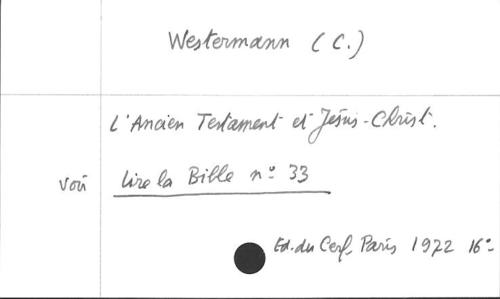 Westermann (C.)
L'Ancien Testament et Jésus-Christ.
voir Lire la Bible n° 33
Ed. du Cerf, Paris 1972 16°